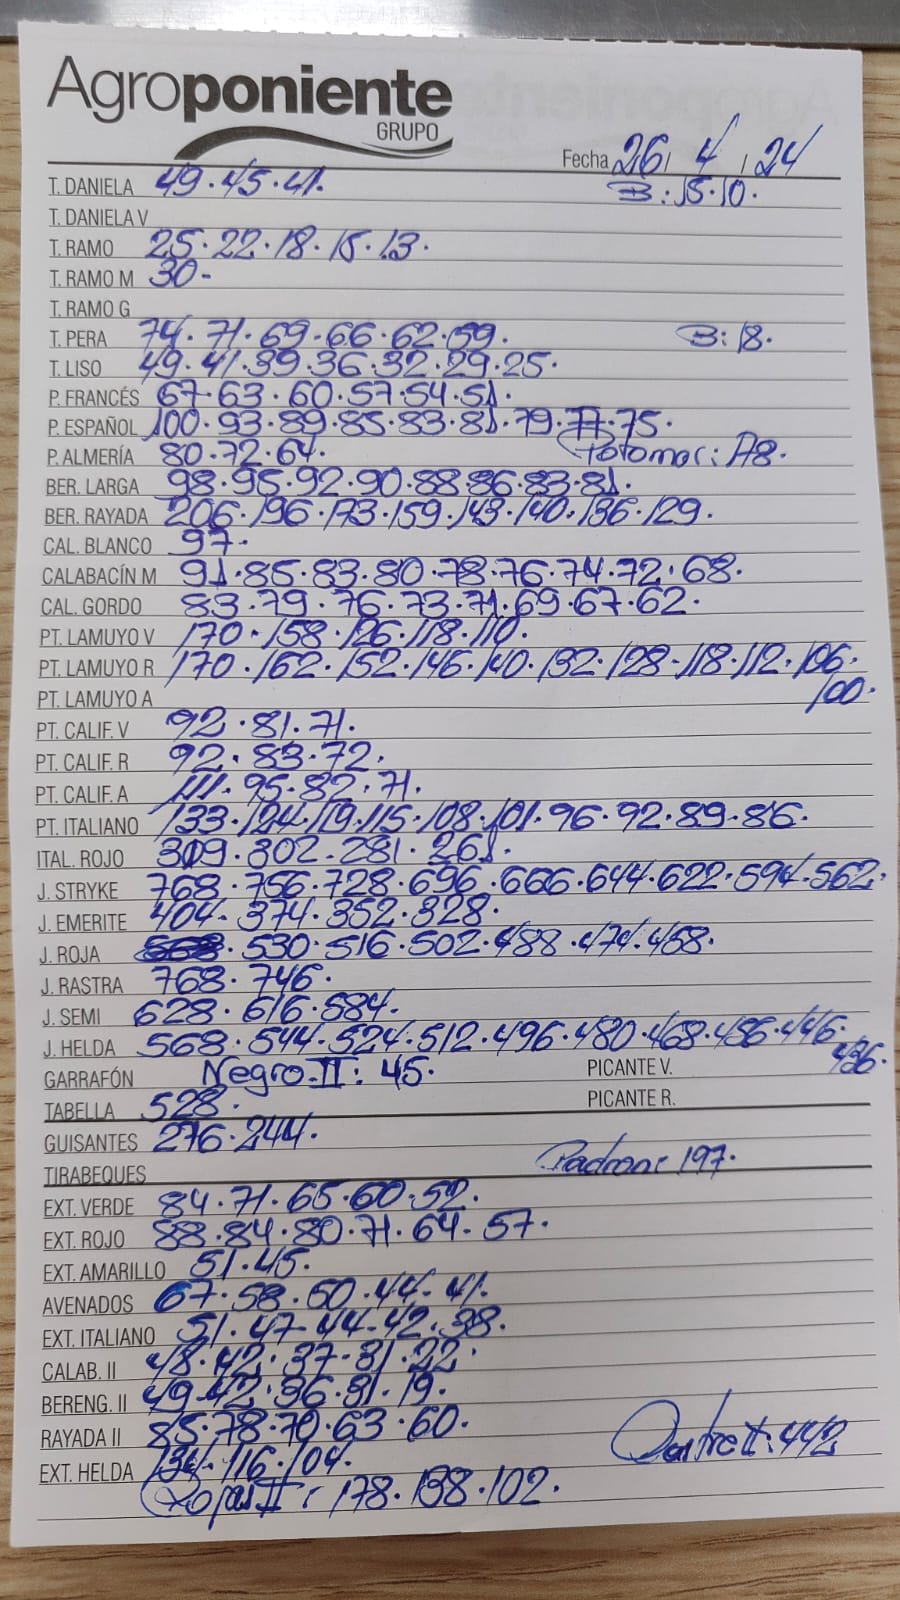 Agroponiente
GRUPO
Fecha 26 / 4 / 24
T. DANIELA 49.45.41. B: 15.10.
T. DANIELA V
T. RAMO 25.22.18.15.13.
T. RAMO M 30-
T. RAMO G
T. PERA 74.71.69.66.62.59. B: 18.
T. LISO 49.41.39.36.32.29.25.
P. FRANCÉS 67.63.60.57.54.51.
P. ESPAÑOL 100.93.89.85.83.81.79.77.75.
P. ALMERÍA 80.72.64.
BER. LARGA 98.95.92.90.88.86.83.81.
BER. RAYADA 206.196.173.159.143.140.136.129.
CAL. BLANCO 97.
CALABACÍN M 91.85.83.80.78.76.74.72.68.
CAL. GORDO 83.79.76.73.71.69.67.62.
PT. LAMUYO V 170.158.126.118.110.
PT. LAMUYO R 170.162.152.146.140.132.128-118.112.106.
100.
PT. LAMUYO A
PT. CALIF. V 92.81.71.
PT. CALIF. R 92.83.72.
PT. CALIF. A 111.95.82.71.
PT. ITALIANO 133.124.119.115.108.101.96.92.89.86.
ITAL. ROJO 309.302.281.261.
J. STRYKE 768.756.728.696.666.644.622.594.562.
J. EMERITE 404.374.352.328.
J. ROJA 530.516.502.488.474.458.
J. RASTRA 768.746.
J. SEMI 628.616.584.
J. HELDA 568.544.524.512.496.480.468.456.446.
436.
GARRAFÓN Negro II: 45. PICANTE V.
TABELLA 528. PICANTE R.
GUISANTES 276.244.
TIRABEQUES Padron: 197.
EXT. VERDE 84.71.65.60.52.
EXT. ROJO 88.84.80.71.64-57.
EXT. AMARILLO 51.45.
AVENADOS 67.58.50.44-41.
EXT. ITALIANO 51.47-44-42.38.
CALAB. II 48.42.37-31.22.
BERENG. II 49.42.36.31.19.
RAYADA II 85.78.70.63.60.
EXT. HELDA 134.116.104. 442
Rojas II: 178.138.102.